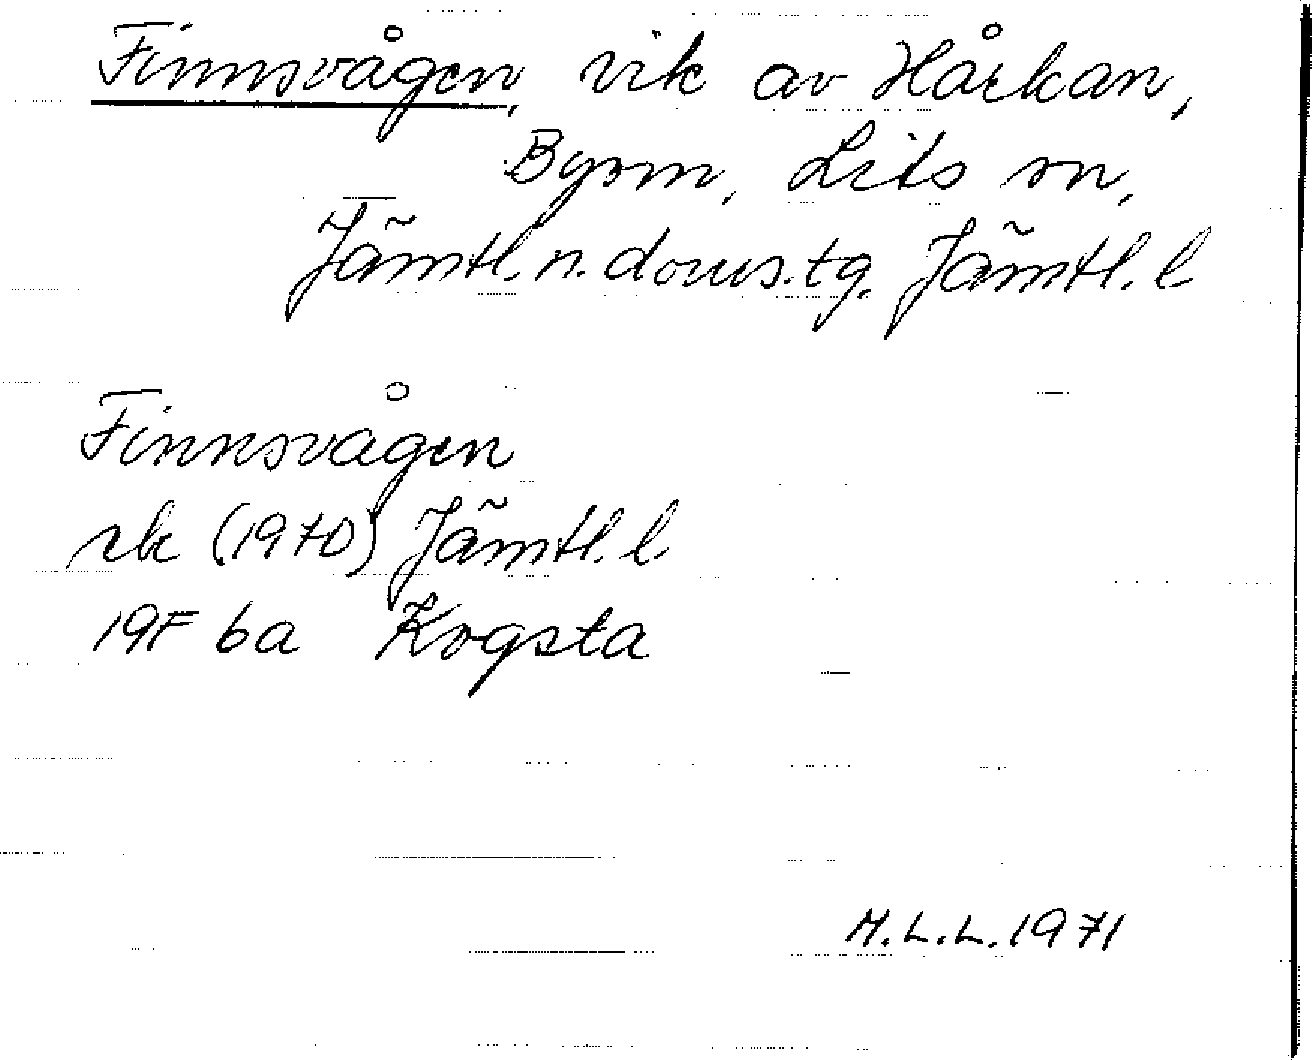 Finnsvågen, vik av Hårkan,
Byom, Lits sn,
Jämtl. n. doms.tg. Jämtl. l
Finnsvågen
rk (1970) Jämtl. l.
19F 6a Kogsta
M.L.L. 1971